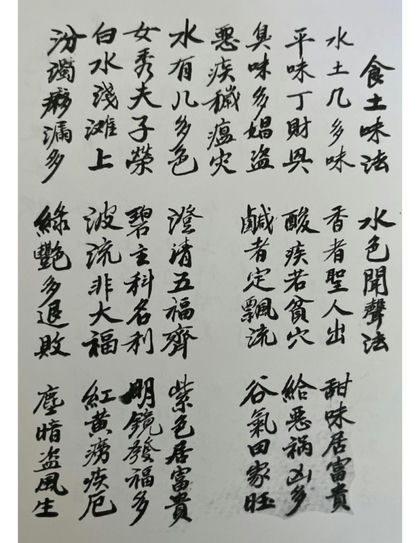 食土味法 水色聞聲法
水土几多味 香者聖人出 甜味居富貴
平味丁財興 酸疾若貧穴 給惡祸凶多
臭味多娼盗 鹹者定飄流 谷氣田家旺
惡疾穢瘟灾
水有几多色 澄清五福齊 紫色居富貴
女秀夫子榮 碧主科名利 明鏡發福多
白水浅滩上 波流非大福 紅黄痨疾厄
汾濁漏多 綠艷多退敗 塵暗盗風生